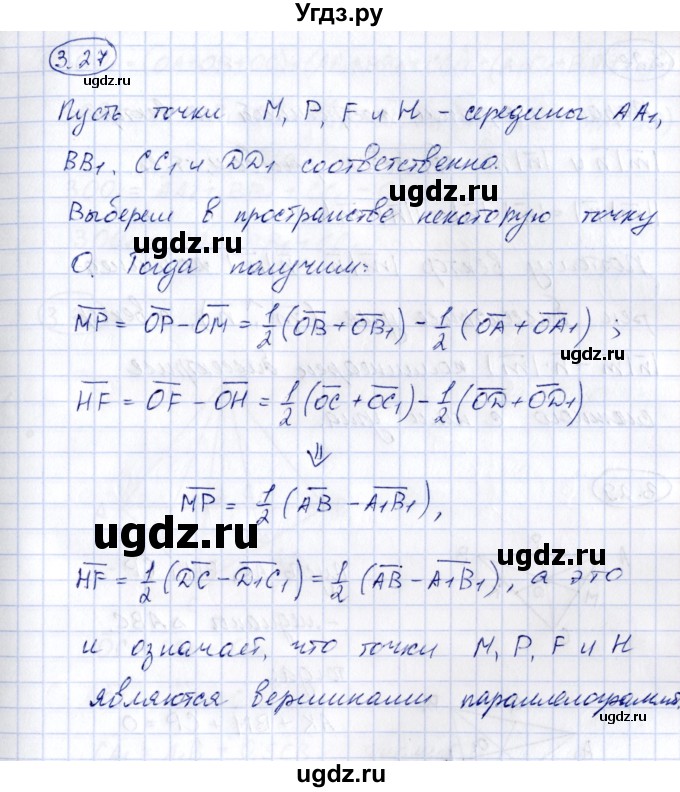 Угдз.ру
3.27
Пусть точки M, P, F и H - середины AA₁,
BB₁, CC₁ и DD₁ соответственно.
Выберем в пространстве некоторую точку
ugdz.ru
ugdz.ru
O. Тогда получим:
M͞P͞ = O͞P͞ - O͞M͞ = 1/2 (O͞B͞ + O͞B͞₁) - 1/2 (O͞A͞ + O͞A͞₁) ;
ugdz.ru
H͞F͞ = O͞F͞ - O͞H͞ = 1/2 (O͞C͞ + O͞C͞₁) - 1/2 (O͞D͞ + O͞D͞₁)
⇓
M͞P͞ = 1/2 (A͞B͞ - A͞₁B͞₁),
ugdz.ru
ugdz.ru
H͞F͞ = 1/2 (D͞C͞ - D͞₁C͞₁) = 1/2 (A͞B͞ - A͞₁B͞₁), а это
и означает, что точки M, P, F и H
ugdz.ru
являются вершинами параллелограмма.
ugdz.ru
ugdz.ru